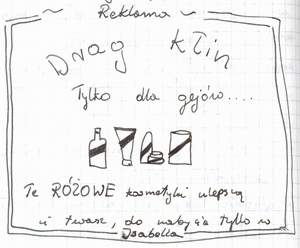 Reklama
Drag Kłin
Tylko dla gejów....
Te RÓŻOWE kosmetyki ulepszą
ci twasz, do nabycia tylko w
Isabella